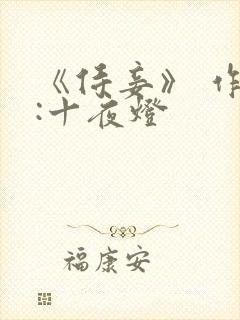 《侍妾》 作
:十夜燈
福康安